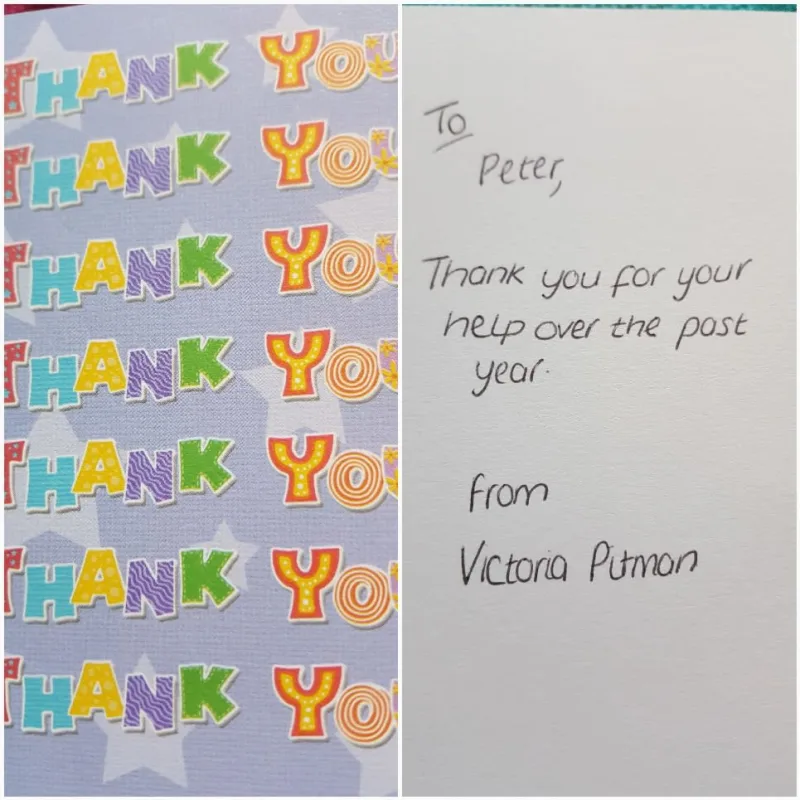 THANK YOU
THANK YOU
THANK YOU
THANK YOU
THANK YOU
THANK YOU
THANK YOU
To
Peter,
Thank you for your
help over the past
year.
from
Victoria Pitman